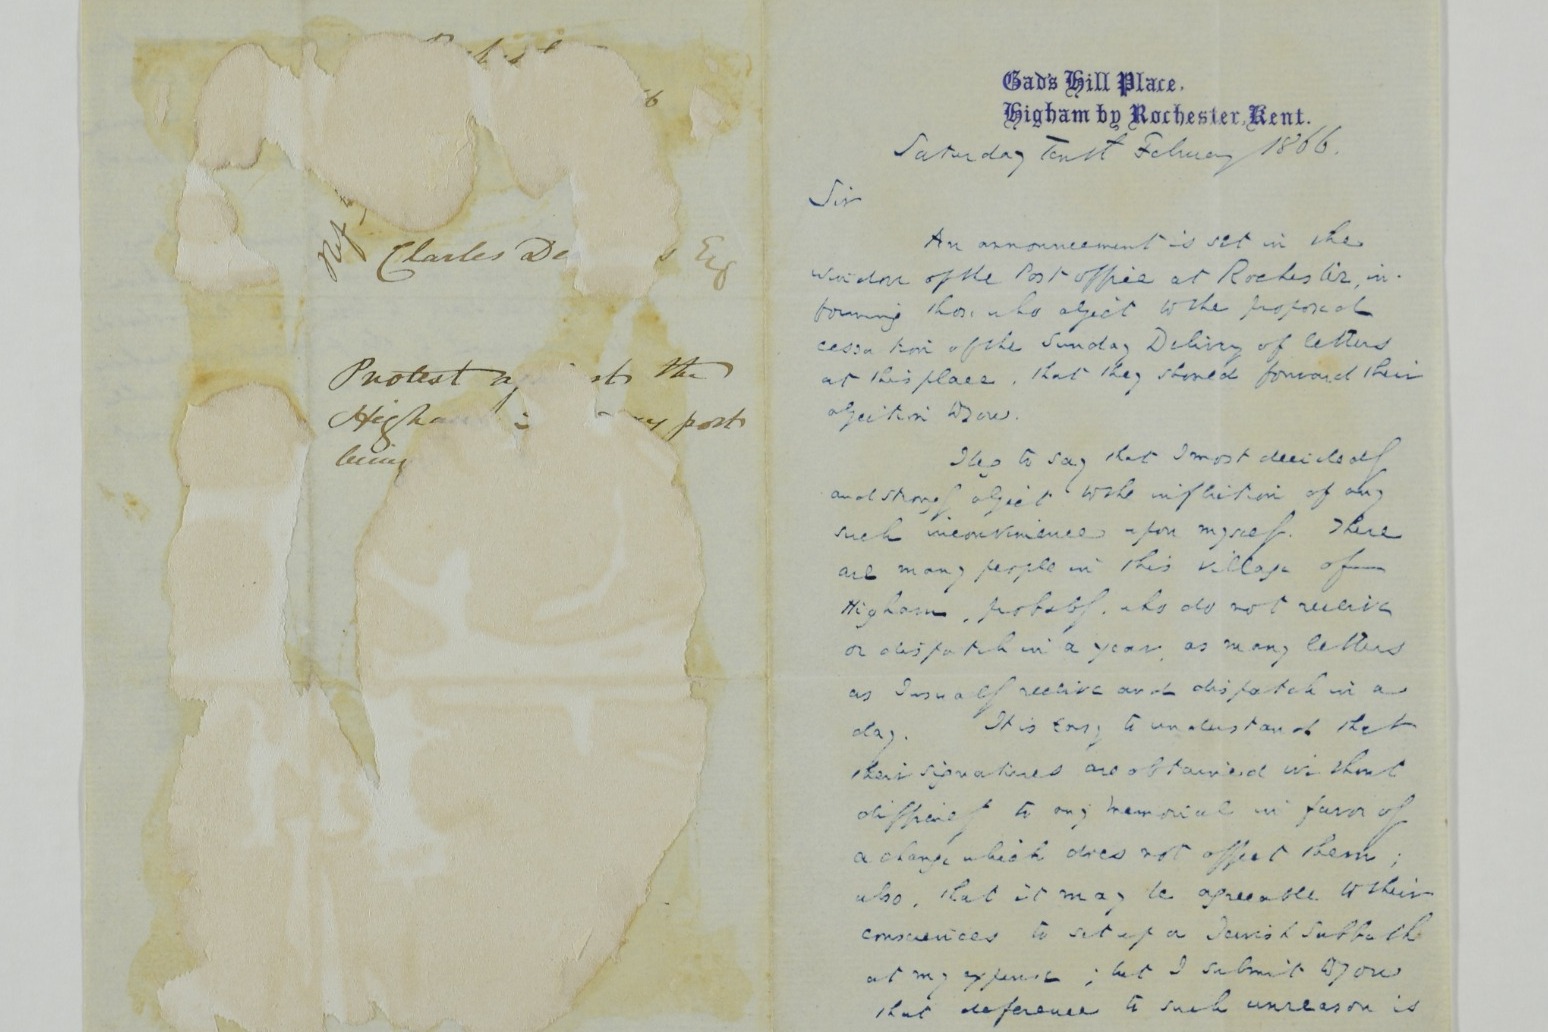 6
Ref
Charles De s Esq
Protest ag sts the
Higham post
being
Gad's Hill Place,
Higham by Rochester, Kent.
Saturday Tenth February 1866.
Sir
An announcement is set in the
window of the Post office at Rochester, in-
forming those who object to the proposed
cessation of the Sunday Delivery of letters
at this place, that they should forward their
objection to you.
I beg to say that I most decidedly
and strongly object to the infliction of any
such inconvenience upon myself. There
are many people in this village of
Higham, probably, who do not receive
or dispatch in a year, as many letters
as I usually receive and dispatch in a
day. It is easy to understand that
their signatures are obtained without
difficulty to any memorial in favor of
a change which does not affect them;
also, that it may be agreeable to their
consciences to set up a Jewish Sabbath
at my expense; but I submit to you
that deference to such unreason is